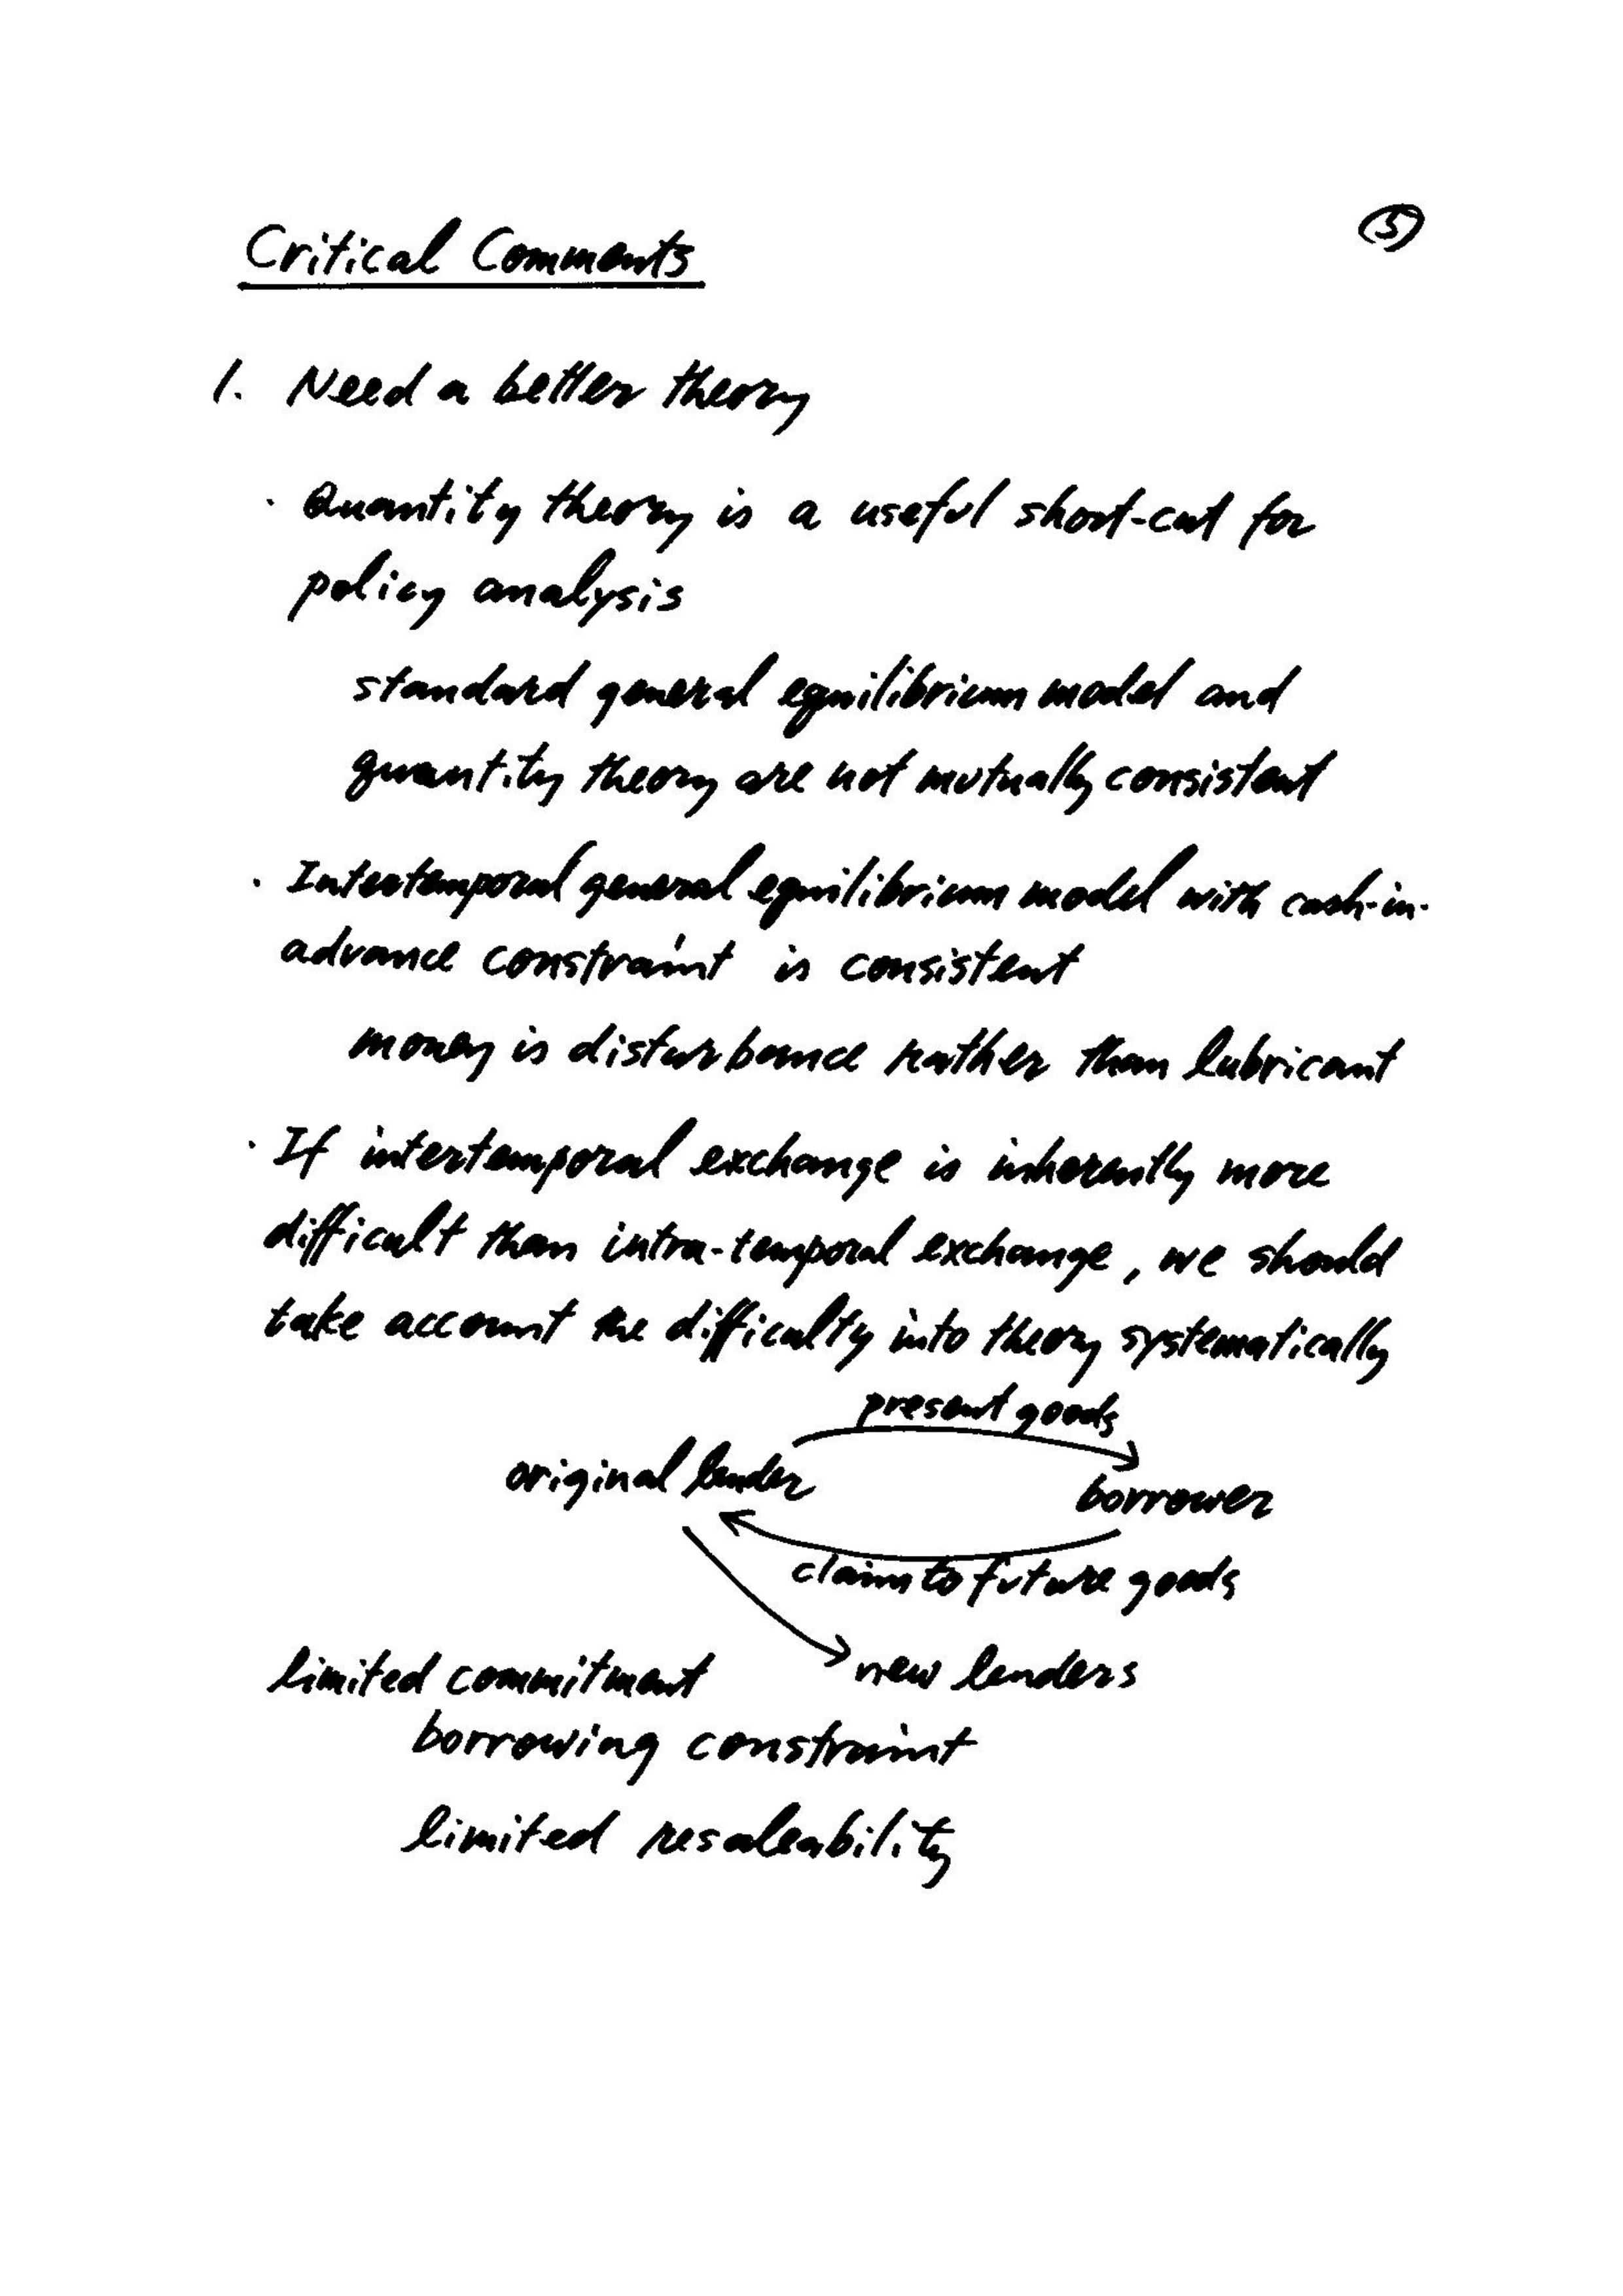 Critical Comments
(5)
1. Need a better theory
· Quantity theory is a useful short-cut for
policy analysis
standard general equilibrium model and
quantity theory are not mutually consistent
· Intertemporal general equilibrium model with cash-in-
advance constraint is consistent
money is disturbance rather than lubricant
· If intertemporal exchange is inherently more
difficult than intra-temporal exchange, we should
take account the difficulty into theory systematically
present goods
original lender
borrower
claim to future goods
new lenders
limited commitment
borrowing constraint
limited resaleability